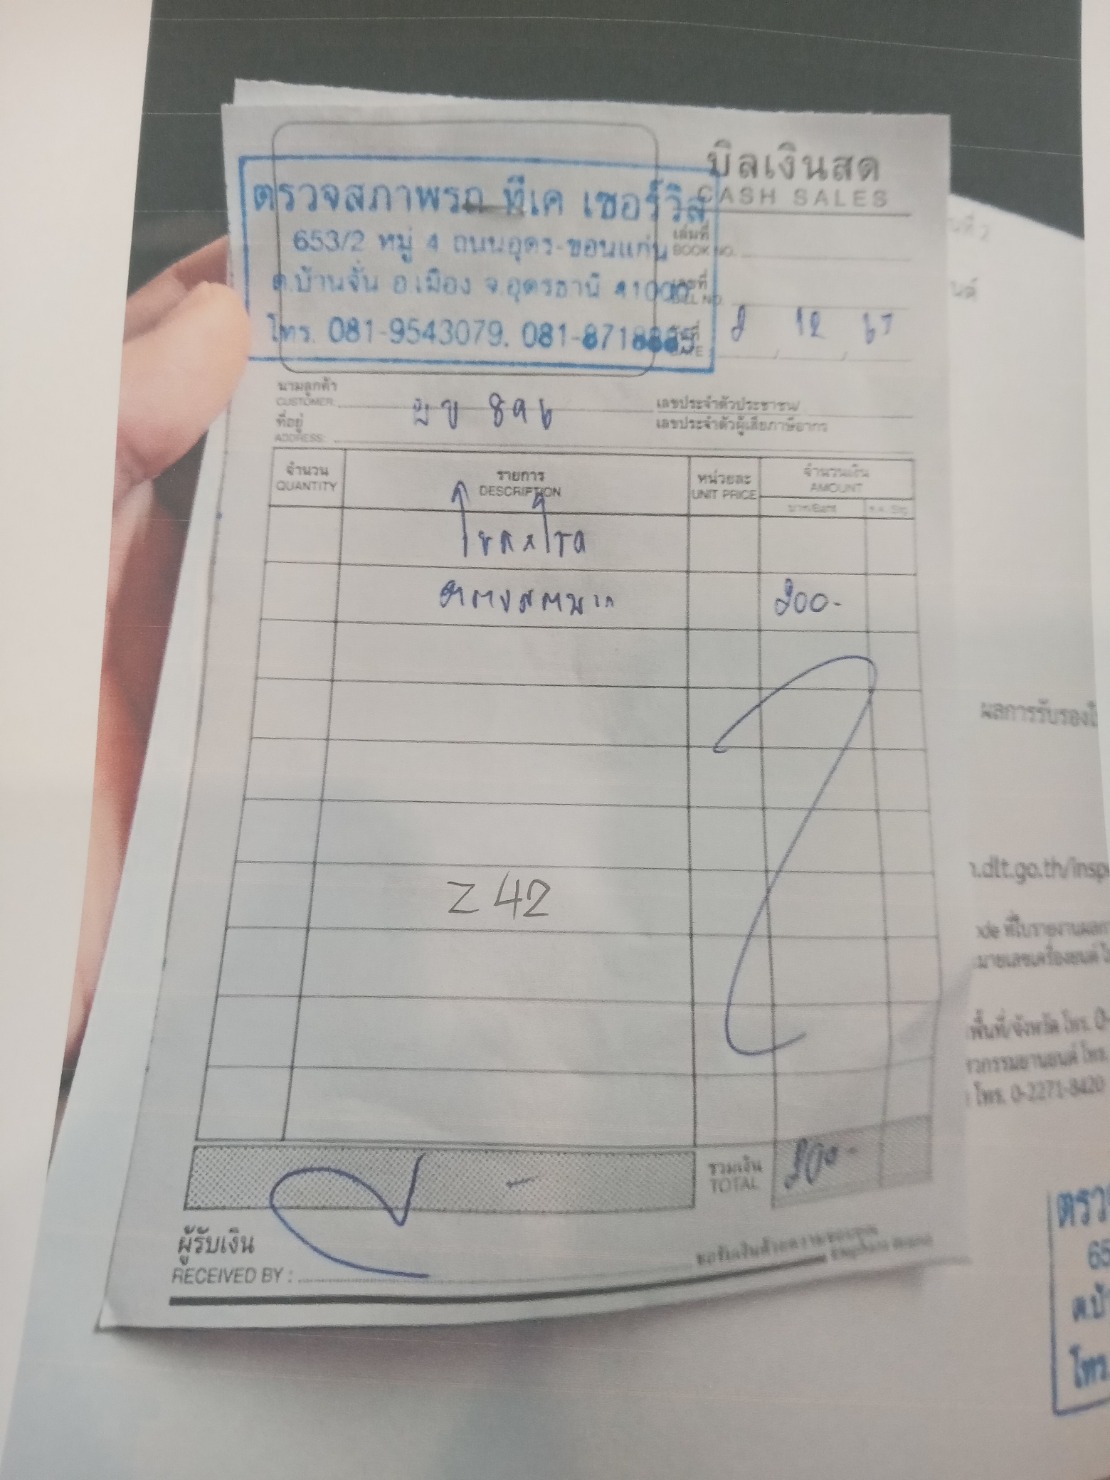 บิลเงินสด
CASH SALES
ตรวจสภาพรถ ทีเค เซอร์วิส
653/2 หมู่ 4 ถนนอุดร-ขอนแก่น
ต.บ้านจั่น อ.เมือง จ.อุดรธานี 41000
โทร. 081-9543079, 081-8718885
เล่มที่
BOOK NO.
เลขที่
BILL NO.
วันที่
DATE
12 67
นามลูกค้า
CUSTOMER:
ผข 896
เลขประจำตัวประชาชน/
เลขประจำตัวผู้เสียภาษีอากร
ที่อยู่
ADDRESS:
จำนวน
QUANTITY
รายการ
DESCRIPTION
หน่วยละ
UNIT PRICE
จำนวนเงิน
AMOUNT
บาท/Baht
ส.ต./Stg.
ตรวจสภาพรถ
200-
Z 42
รวมเงิน
TOTAL
200-
ผู้รับเงิน
RECEIVED BY :
ขอรับเงินด้วยความขอบคุณ
Elephant Brand
ผลการรับรอง
.dlt.go.th/insp
โทร. 0-2271-8420
ตรว
65
ต.บ้
โทร.